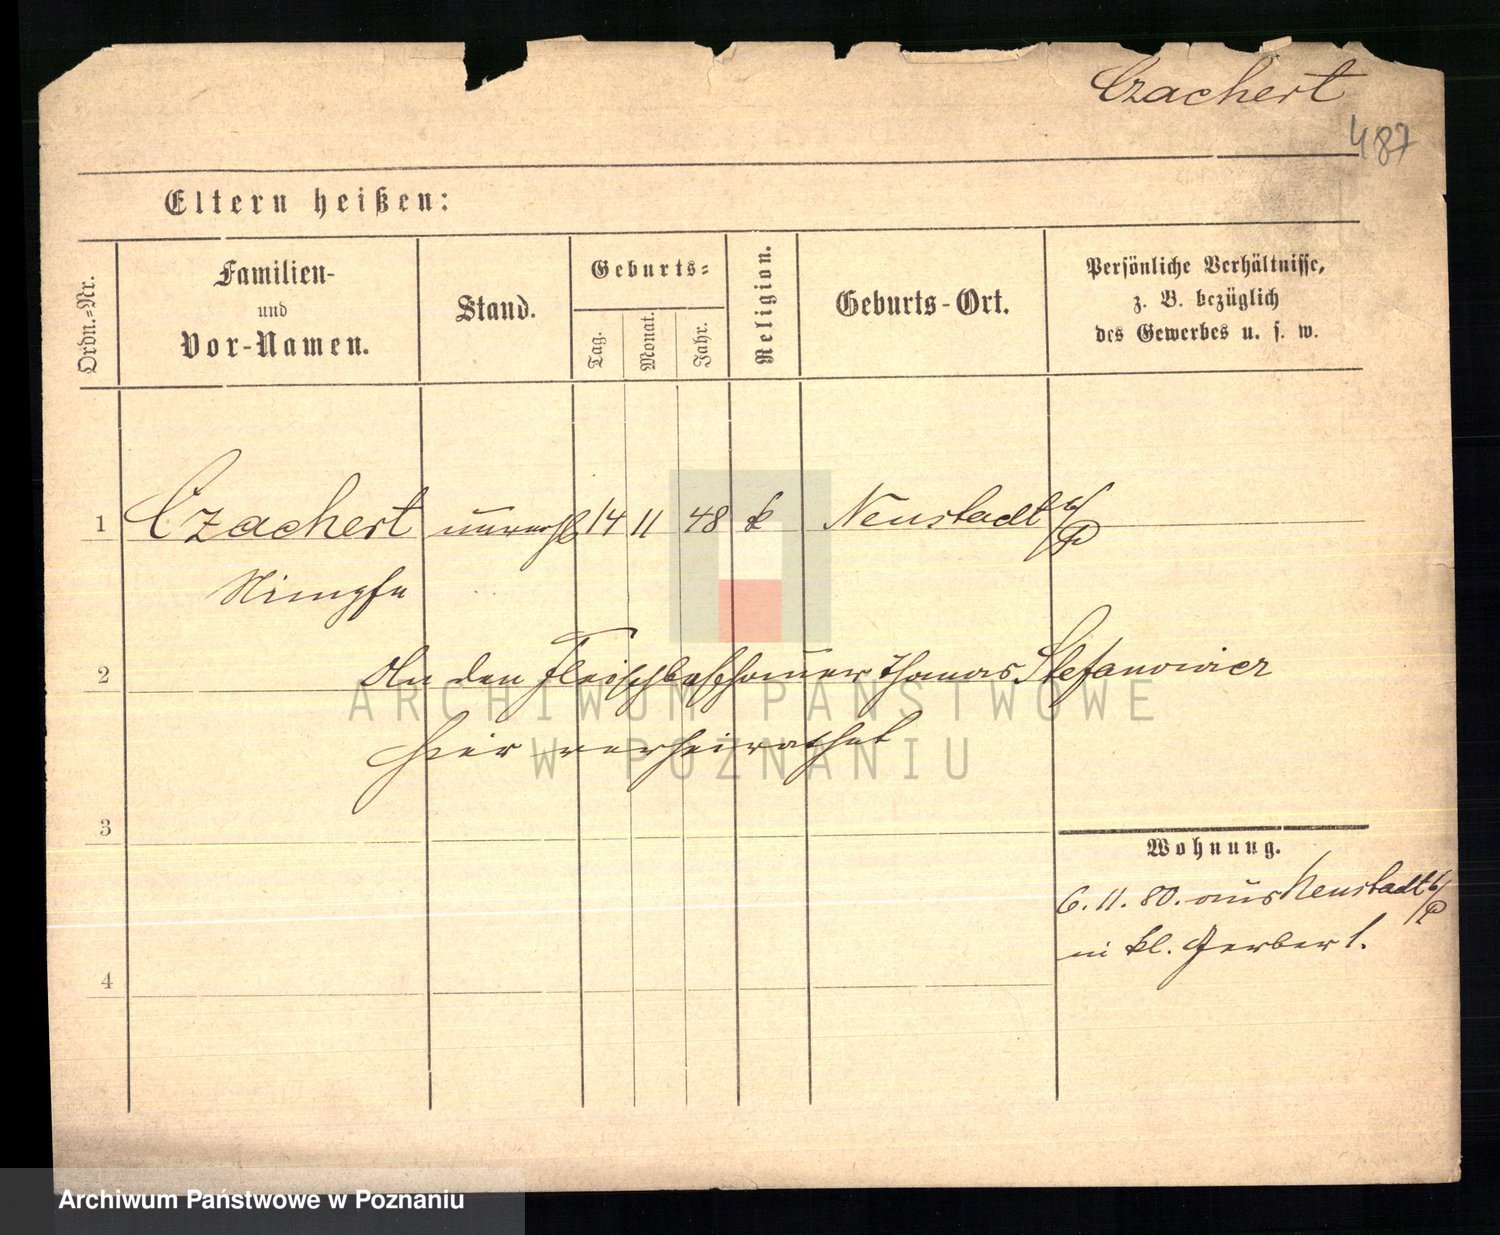 Czachert
487
Eltern heißen:
Ordn.=Nr.
Familien-
und
Vor-Namen.
Stand.
Geburts=
Tag.
Monat.
Jahr.
Religion.
Geburts-Ort.
Persönliche Verhältnisse,
z. B. bezüglich
des Gewerbes u. s. w.
1 Czachert unverh 14 11 48 k Neustadt b/P
Nimpfa
2
An den Fleischbeschauer Thomas Stefanowicz
hier verheirathet
ARCHIWUM PAŃSTWOWE
W POZNANIU
3
Wohnung.
6. 11. 80. aus Neustadt b/P
in kl. Gerber 1.
4
Archiwum Państwowe w Poznaniu